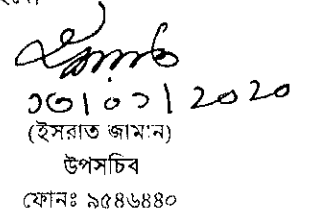 ১৩|০১|2০2০
(ইসরাত জামান)
উপসচিব
ফোনঃ ৯৫৪৬৪৪০